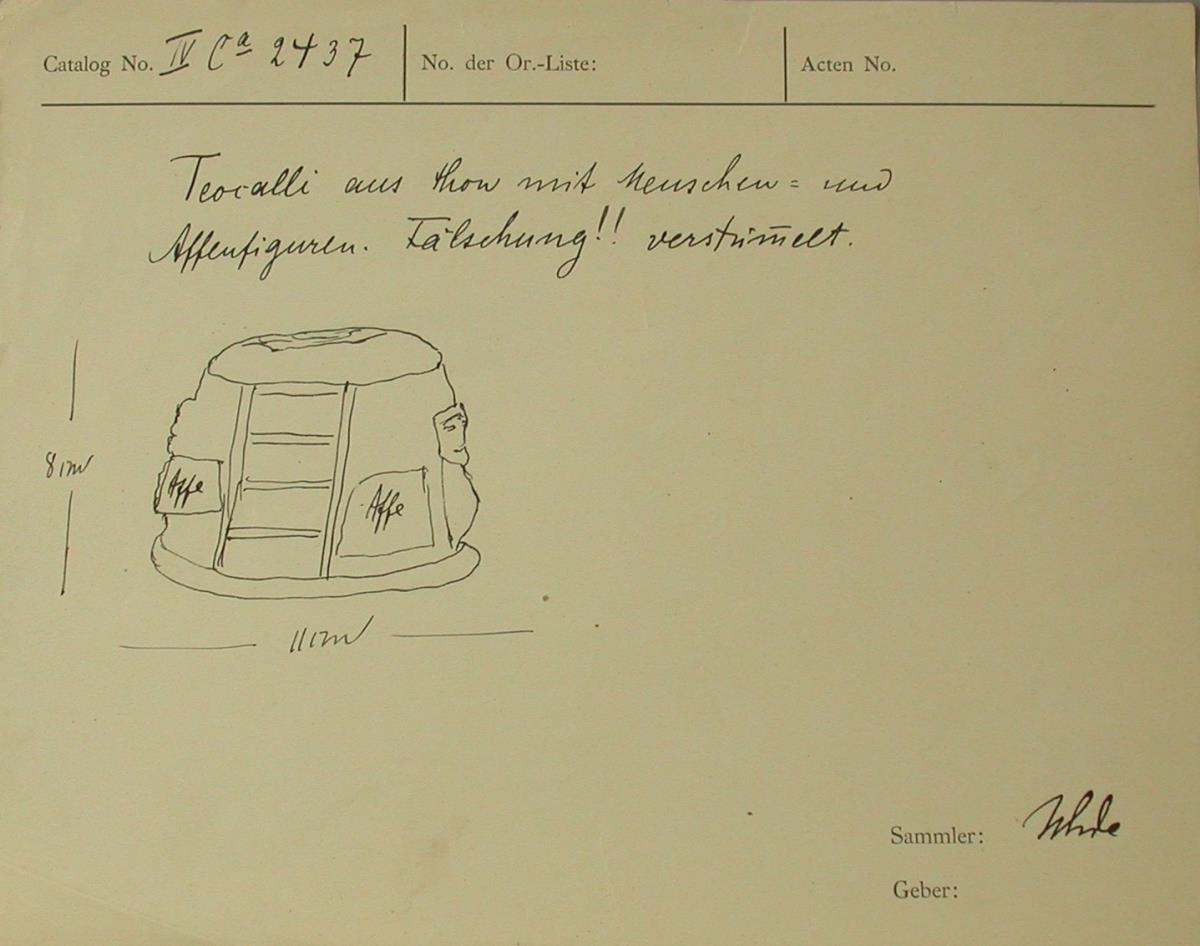 Catalog No. IV Ca 2437 No. der Or.-Liste: Acten No.
Teocalli aus Thon mit Menschen= und
Affenfiguren. Fälschung!! verstüm̅elt.
8 cm
Affe
Affe
11 cm
Sammler: Uhde
Geber: